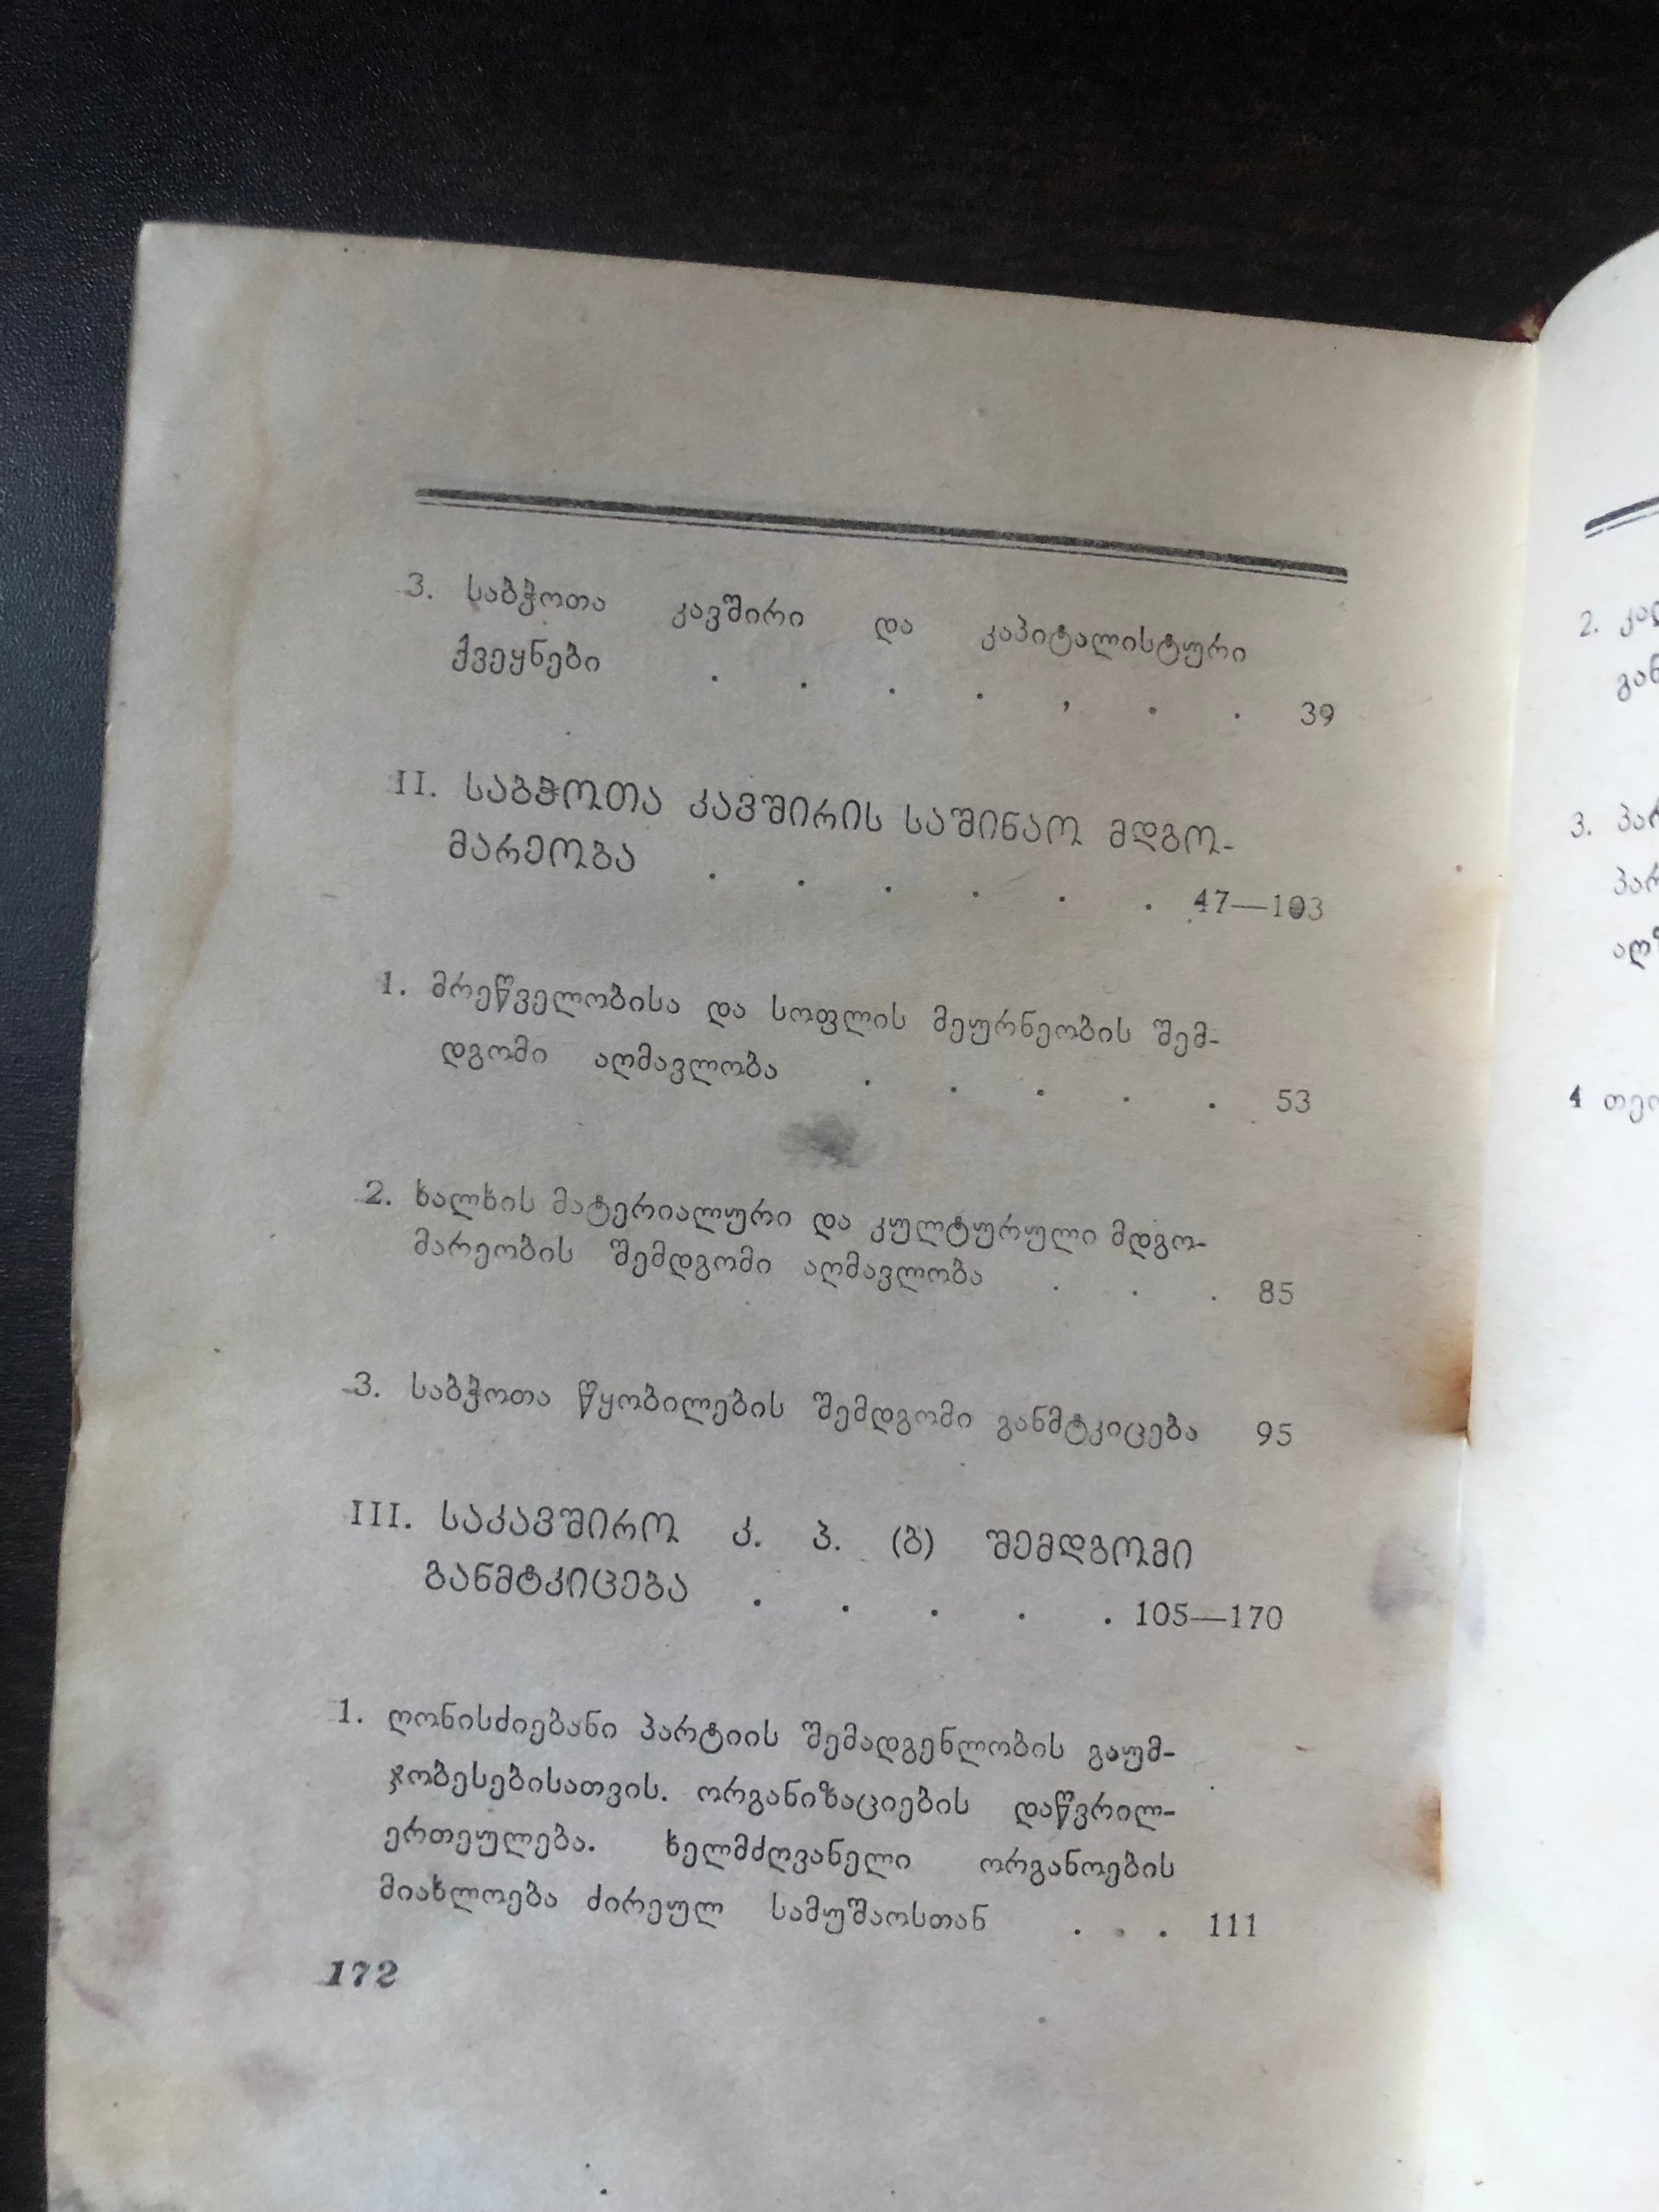 3. საბჭოთა კავშირი და კაპიტალისტური
ქვეყნები . . . . , . . 39
II. საბჭოთა კავშირის საშინაო მდგო-
მარეობა . . . . . . 47—103
1. მრეწველობისა და სოფლის მეურნეობის შემ-
დგომი აღმავლობა . . . . . 53
2. ხალხის მატერიალური და კულტურული მდგო-
მარეობის შემდგომი აღმავლობა . . . 85
3. საბჭოთა წყობილების შემდგომი განმტკიცება 95
III. საკავშირო კ. პ. (ბ) შემდგომი
განმტკიცება . . . . . 105—170
1. ღონისძიებანი პარტიის შემადგენლობის გაუმ-
ჯობესებისათვის. ორგანიზაციების დაწვრილ-
ერთეულება. ხელმძღვანელი ორგანოების
მიახლოება ძირეულ სამუშაოსთან . . . 111
172
2.
3.
4